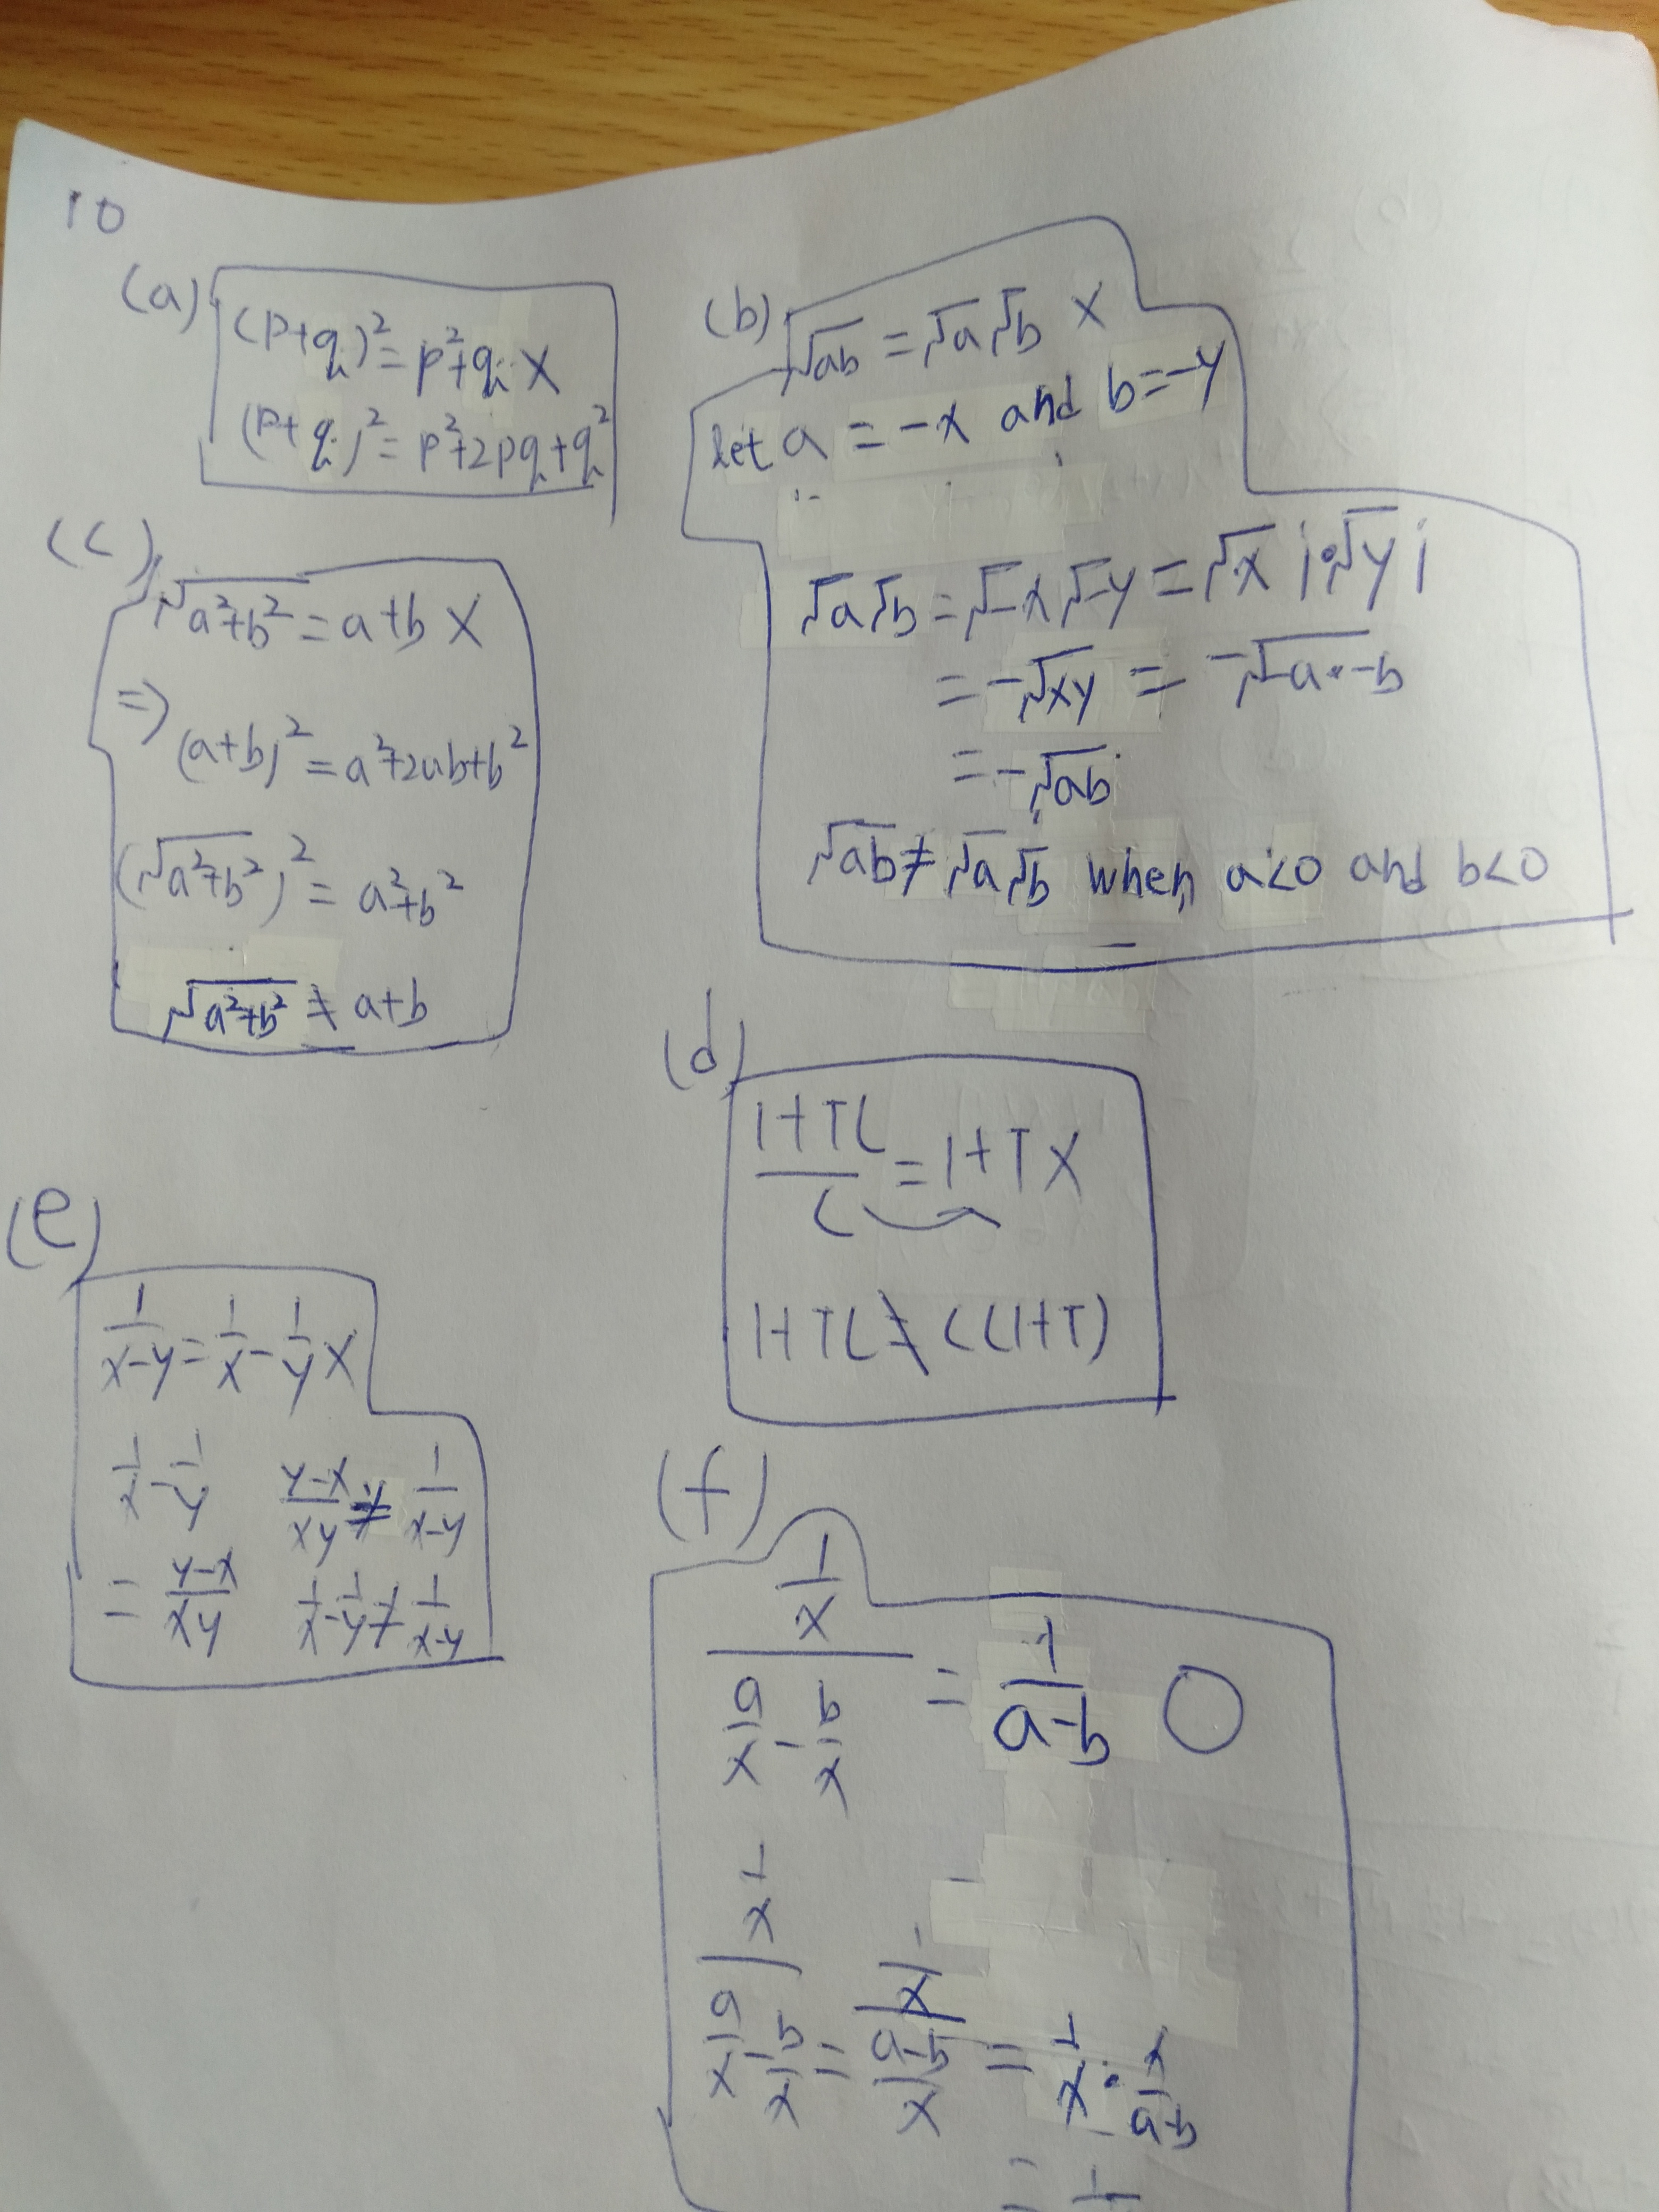 10
(a)
(p+q)²=p²+q X
(p+q)²=p²+2pq+q²
(b)
√ab=√a√b X
let a=-x and b=-y
√a√b=√-x√-y=√x i·√y i
=-√xy=-√-a·-b
=-√ab
√ab≠√a√b when a<0 and b<0
(c)
√a²+b²=a+b X
⇒
(a+b)²=a²+2ab+b²
(√a²+b²)²=a²+b²
√a²+b²≠a+b
(d)
1+TC/C=1+T X
1+TC≠C(1+T)
(e)
1/x-y=1/x-1/y X
1/x-1/y
=y-x/xy
y-x/xy≠1/x-y
1/x-1/y≠1/x-y
(f)
1/x/a/x-b/x=1/a-b ○
1/x/a/x-b/x=1/x/a-b/x=1/x·x/a-b
=1